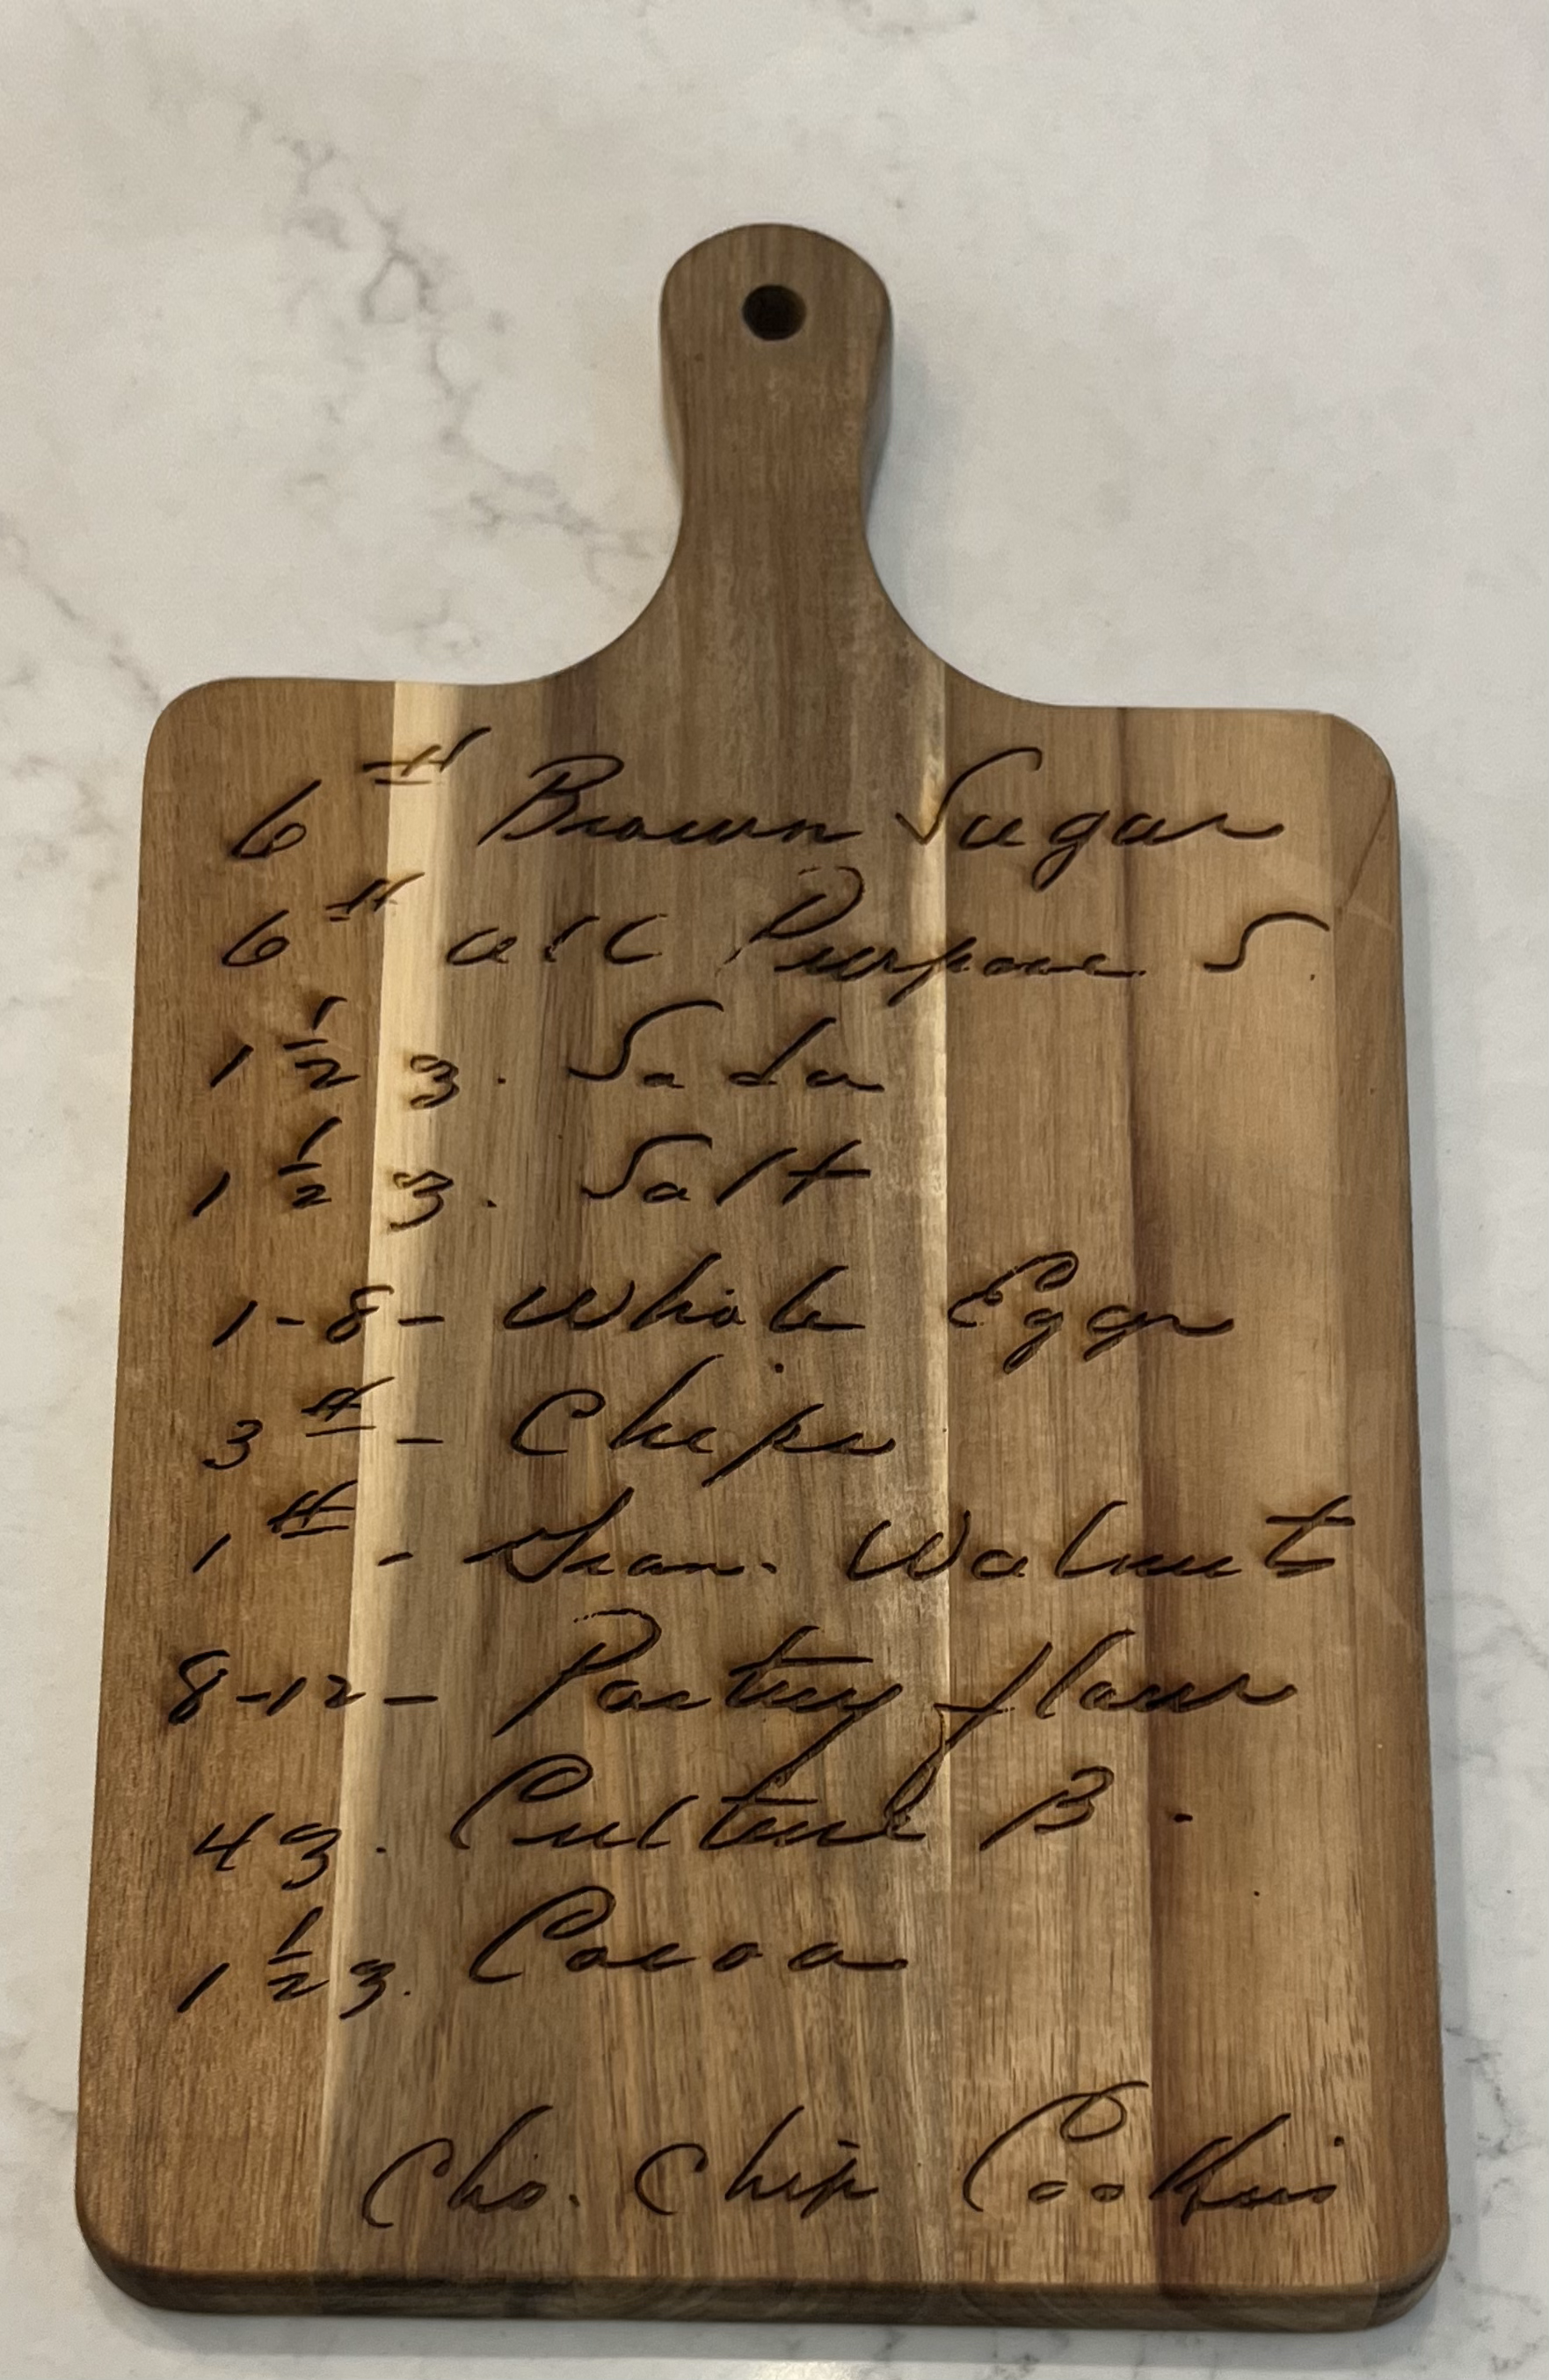 6 # Brown Sugar
6 # all Purpose S.
1 1/2 ℥. Soda
1 1/2 ℥. Salt
1-8- Whole Eggs
3 # - Chips
1 # - Gran. Walnut
8-12- Pastry flour
4 ℥. Culture B.
1 1/2 ℥. Cocoa
Cho. Chip Cookies